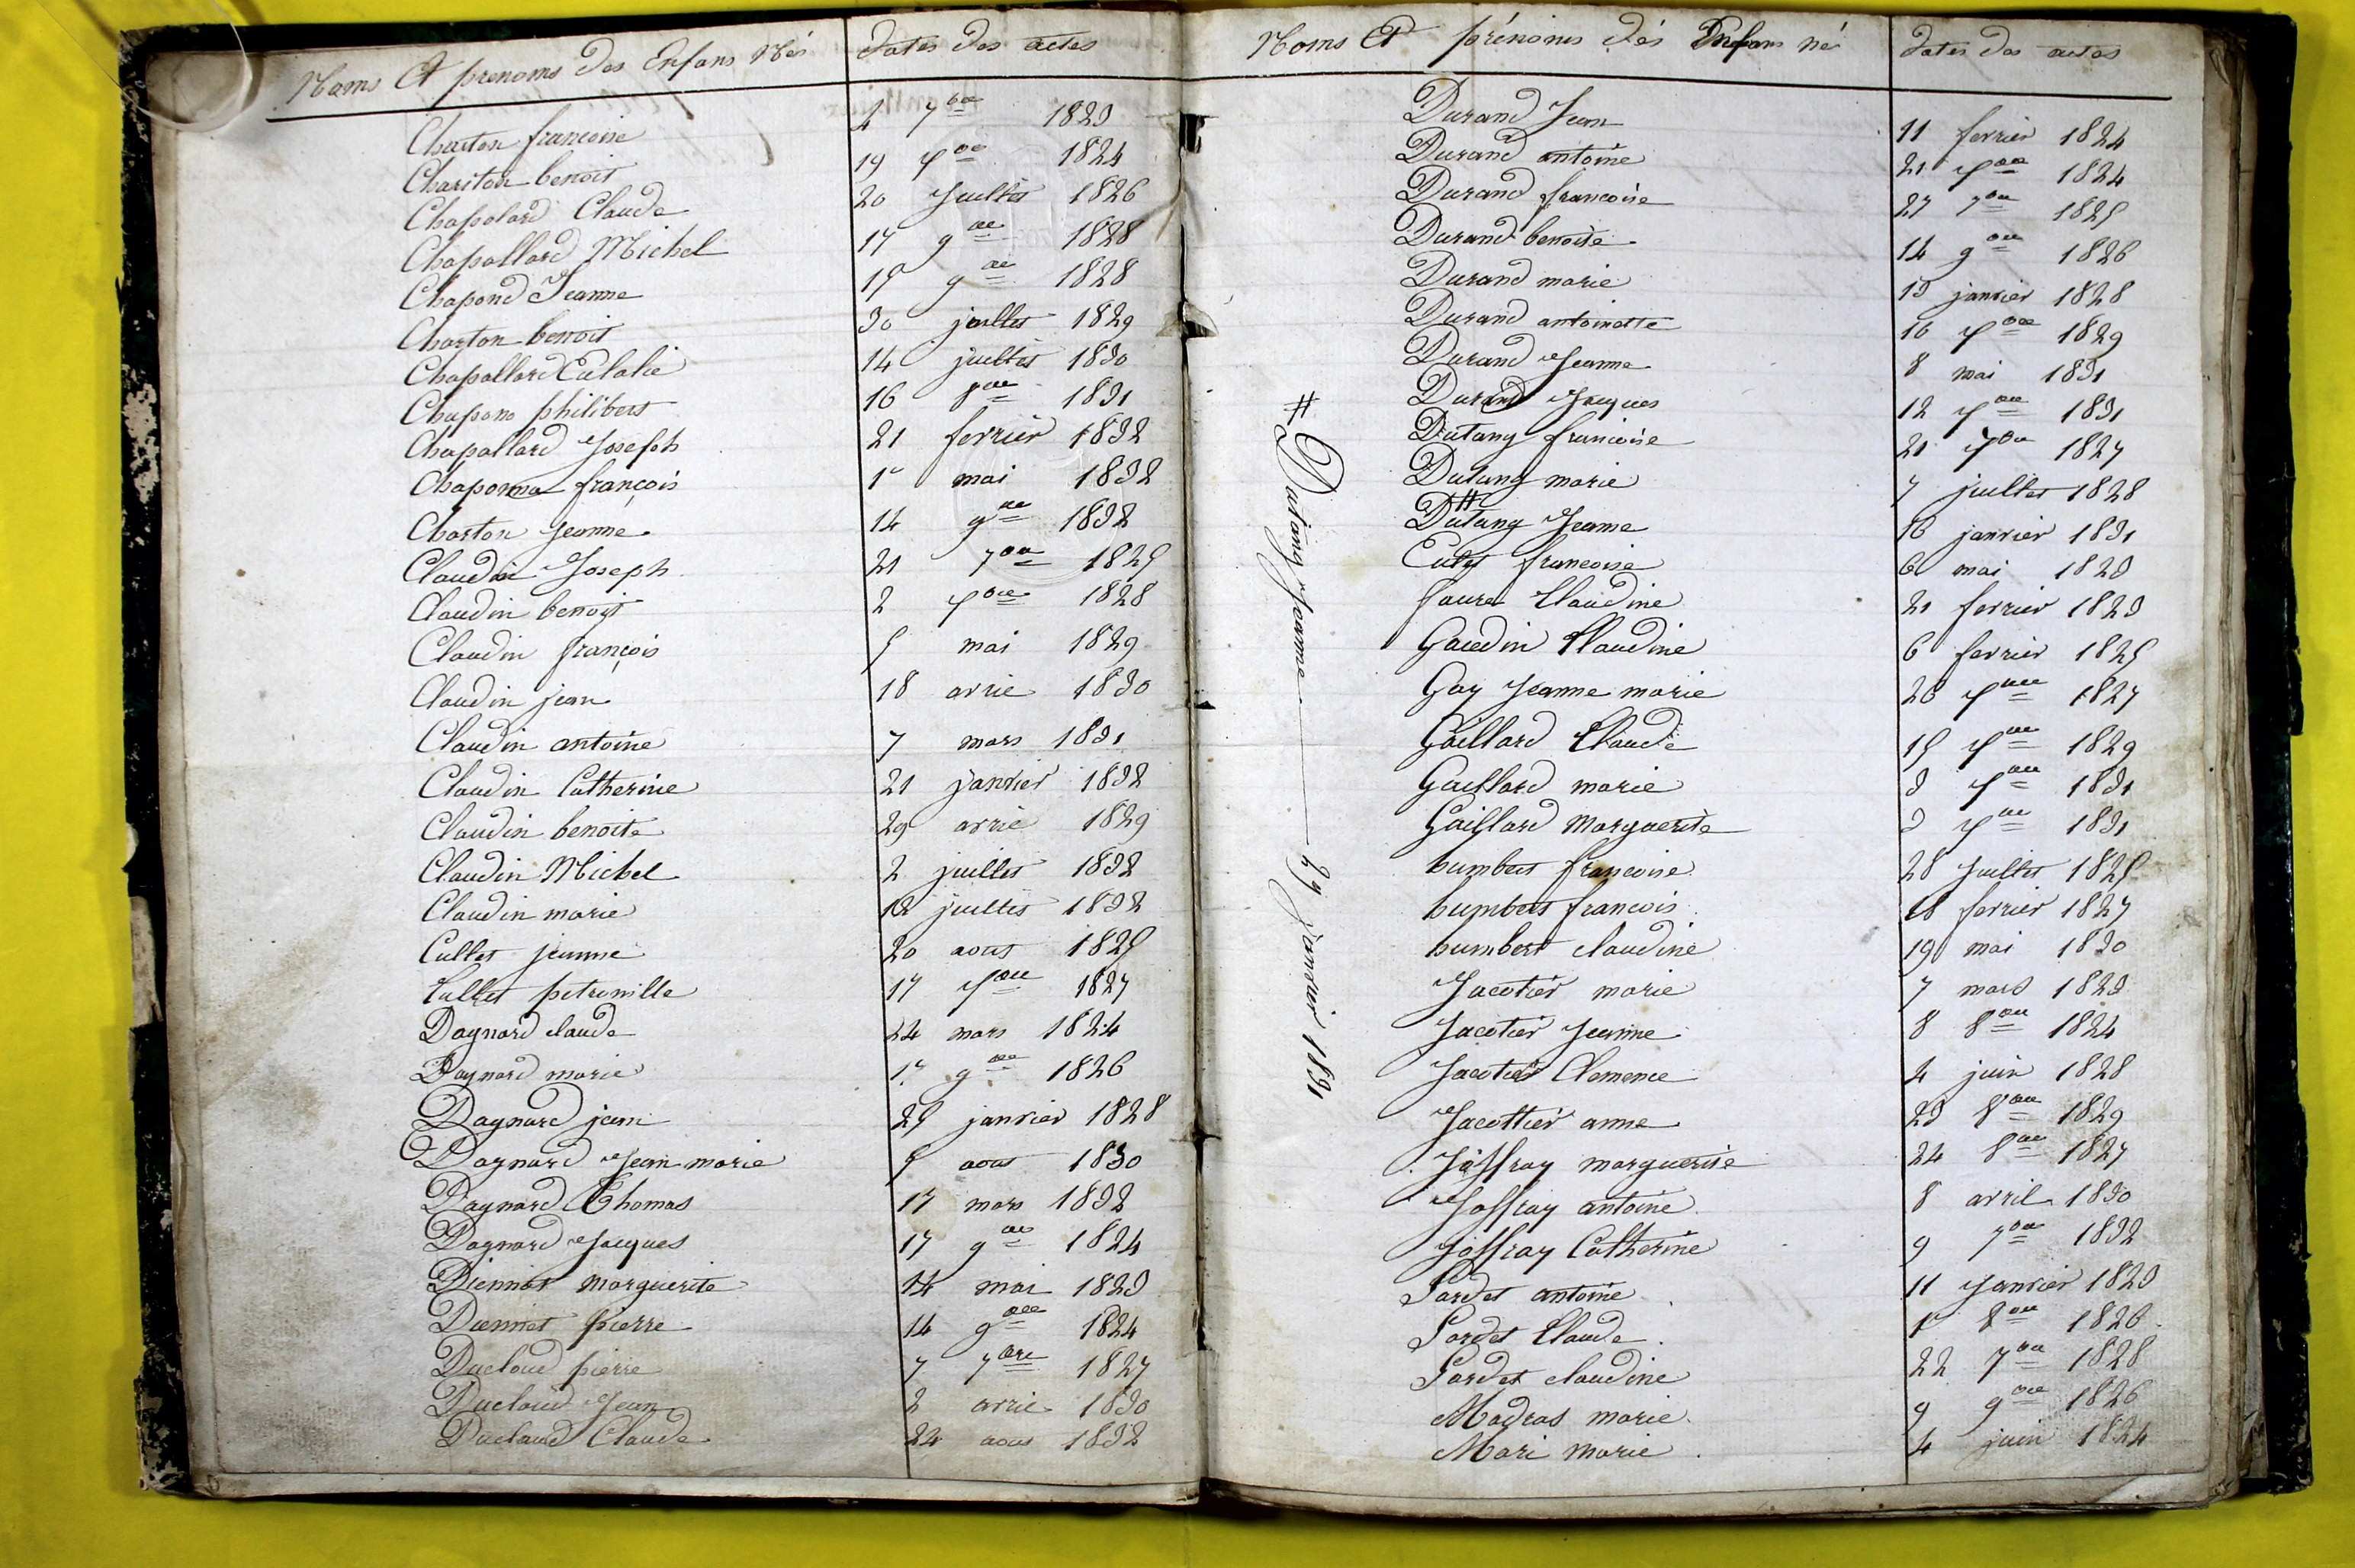 Noms Et prenoms des Enfans Nés dates des actes
Charton francoise 4 7bre 1823
Chariton benoit 19 xbre 1824
Chapolard Claude 20 Juillet 1826
Chapollard Michel 17 9bre 1828
Chapond Jeanne 15 9bre 1828
Charton benoit 30 juillet 1829
Chapollard Eulalie 14 juillet 1830
Chapono philibert 16 8bre 1831
Chapallard Joseph 21 fevrier 1832
Chaponna françois 1r mai 1832
Charton Jeanne 14 9bre 1832
Claudin Joseph 21 7bre 1825
Claudin benoit 2 xbre 1828
Claudin françois 5 mai 1829
Claudin jean 18 avrie 1830
Claudin antoine 7 mars 1831
Claudin Catherine 21 janvier 1832
Claudin benoite 29 avrie 1829
Claudin Michel 2 juillet 1832
Claudin marie 12 juillet 1832
Cullet jeanne 20 aout 1825
Cullet petronille 17 xbre 1827
Dagnard claude 24 mars 1824
Dagnard marie 1r 9bre 1826
Dagnard jean 25 janvier 1828
Dagnard Jean marie 5 aout 1830
Dagnard Thomas 17 mars 1832
Dagnard Jacques 17 9bre 1824
Diennet marguerite 14 mai 1823
Diennet pierre 14 9bre 1824
Ducloud pierre 7 7bre 1827
Ducloud Jean 2 avrie 1830
Ducloud Claude 24 aout 1832
Noms Et prénoms dés Enfans né dates des actes
Durand Jean 11 fevrier 1824
Durand antoine 21 xbre 1824
Durand francoise 27 7bre 1825
Durand benoite 14 9bre 1826
Durand marie 13 janvier 1828
Durand antoinette 16 xbre 1829
Durand Jeanne 8 mai 1831
Durand Jacques 12 xbre 1831
Dutang francoise 21 xbre 1827
Dutang marie 7 juillet 1828
# Dutang Jeanne 16 janvier 1831
Cutet francoise 6 mai 1823
faure Claudine 21 fevrier 1823
Gaudin Claudine 6 fevrier 1825
Gay Jeanne marie 26 xbre 1827
Gaillard Claude 15 xbre 1829
Gaillard marie 3 xbre 1831
Gaillard Marguerite 3 xbre 1831
humbert francoise 28 Juillet 1825
humbert francois 18 fevrier 1827
humbert claudine 19 mai 1830
Jacotier marie 7 mars 1823
Jacotier Jeanne 8 8bre 1824
Jacotier Clemence 4 juin 1828
Jacottier anne 23 8bre 1829
Joffray marguerite 24 8bre 1827
Joffray antoine 8 avril 1830
Joffray Catherine 9 7bre 1832
Lardet antoine 11 Janvier 1823
Lardet Claude 1r 8bre 1826
Lardet claudine 22 7bre 1828
Madras marie 9 9bre 1826
Mari marie 4 juin 1824
# Dutang Jeanne 27 Janvier 1831